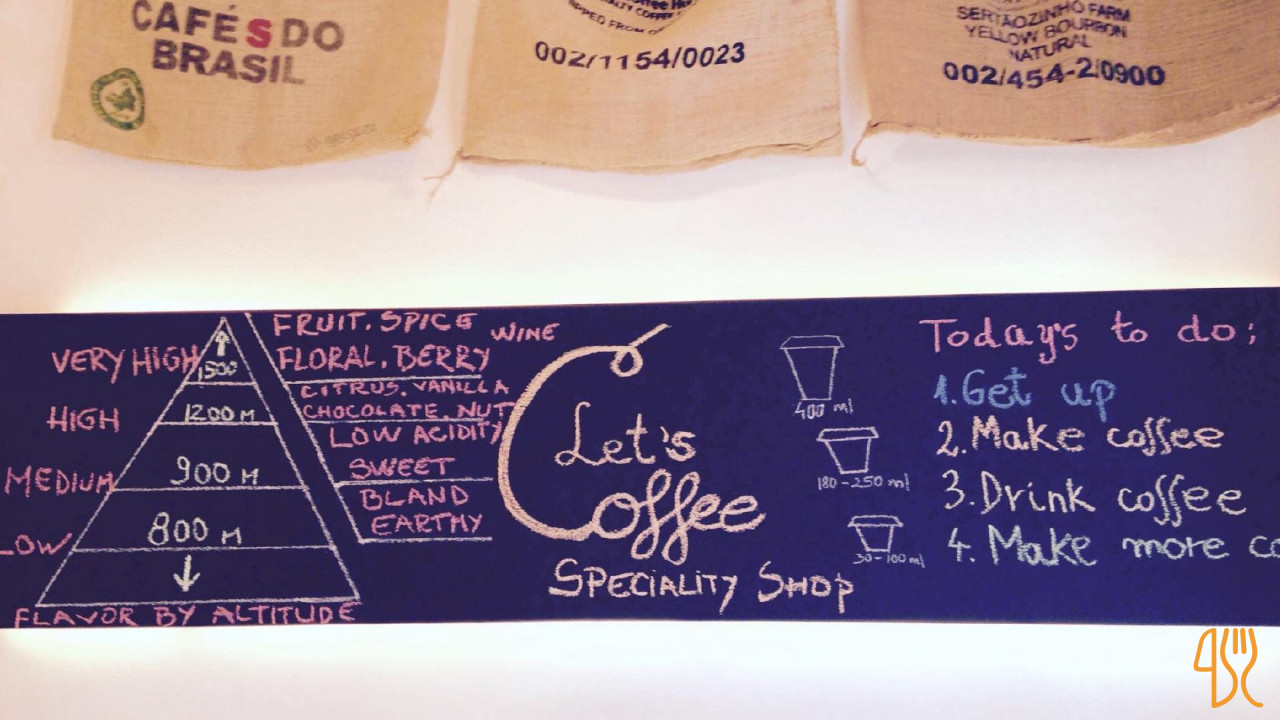 CAFÉS DO
BRASIL
002/1154/0023
SERTÃOZINHO FARM
YELLOW BOURBON
NATURAL
002/454-2/0900
VERY HIGH
HIGH
MEDIUM
LOW
1500
1200 M
900 M
800 M
FLAVOR BY ALTITUDE
FRUIT. SPICE WINE
FLORAL. BERRY
CITRUS. VANILLA
CHOCOLATE. NUT
LOW ACIDITY
SWEET
BLAND
EARTHY
Let's
Coffee
SPECIALITY SHOP
400 ml
180-250 ml
30-100 ml
Todays to do;
1. Get up
2. Make coffee
3. Drink coffee
4. Make more co